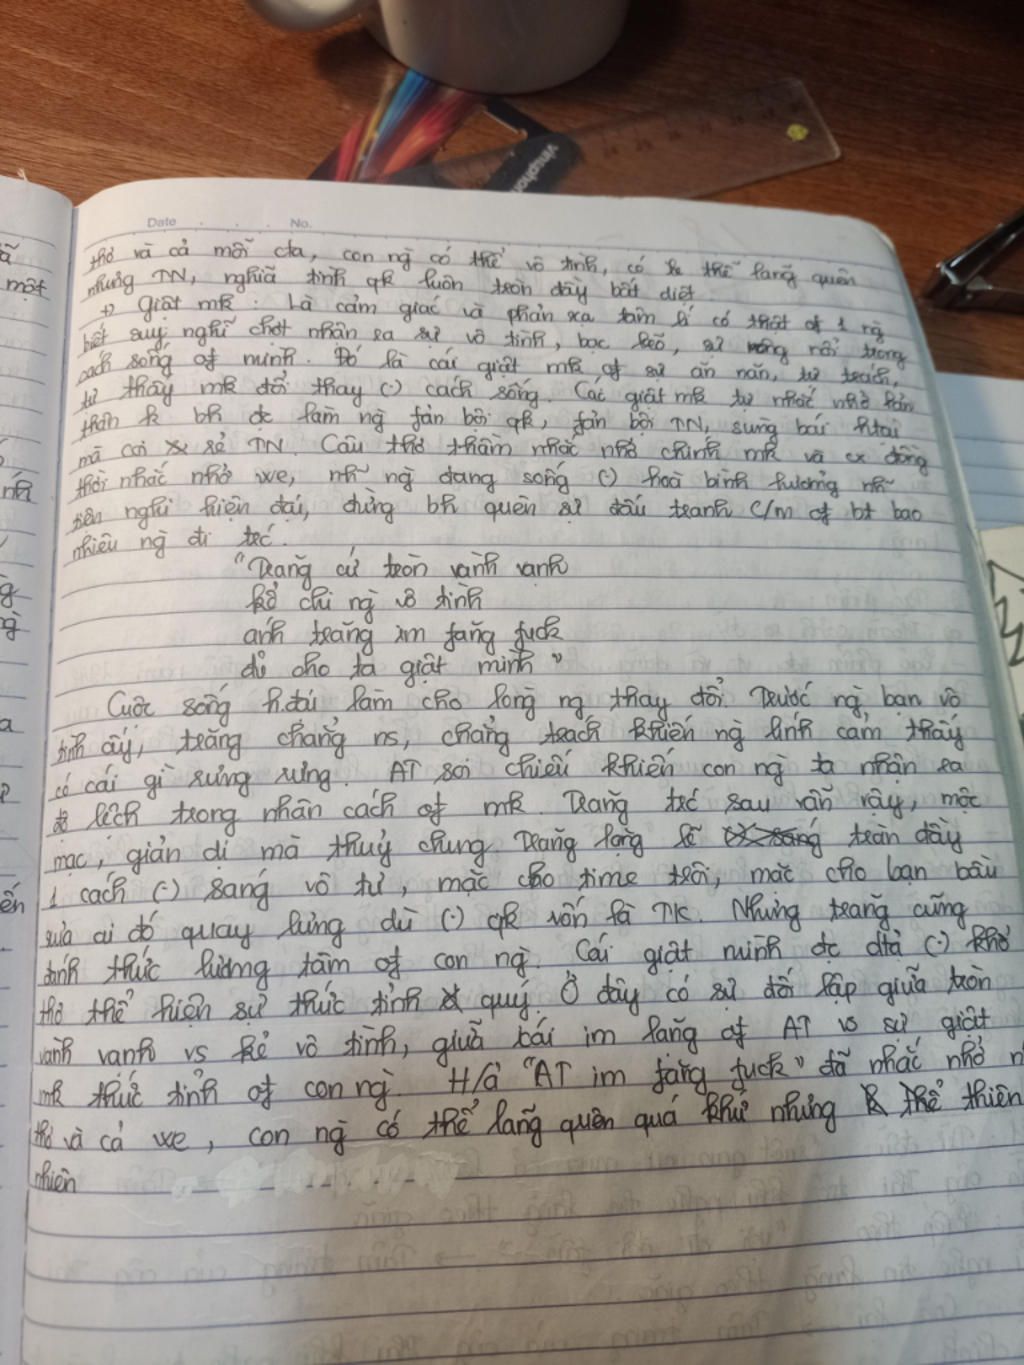 Date No.
thơ và cả mỗi cta, con ng có thể vô tình, có k thể lãng quên
nhưng TN, nghĩa tình qk luôn tròn đầy bất diệt.
+) Giật mk: Là cảm giác và phản xạ tâm lí có thật of 1 ng
biết suy nghĩ chợt nhận ra sự vô tình, bạc bẽo, sự nông nổi trong
cách sống of mình. Đó là cái giật mk of sự ăn năn, tự trách,
tự thấy mk đổi thay (-) cách sống. Cái giật mk tự nhắc nhở bản
thân k bh đc làm ng fản bội qk, fản bội TN, sùng bái htại
mà coi rẻ TN. Câu thơ thầm nhắc nhở chính mk và cx đồng
thời nhắc nhở we, nh~ ng đang sống (-) hoà bình hưởng nh~
tiện nghi hiện đại, đừng bh quên sự đấu tranh c/m of bt bao
nhiêu ng đi trc.
"Trăng cứ tròn vành vạnh
kể chi ng vô tình
ánh trăng im făng fức
đủ cho ta giật mình"
Cuộc sống h.đại làm cho lòng ng thay đổi. Trước ng bạn vô
tình ấy, trăng chẳng ns, chẳng trách khiến ng lính cảm thấy
có cái gì rưng rưng. AT soi chiếu khiến con ng ta nhận ra
độ lệch trong nhân cách of mk. Trăng trc sau vẫn vậy, mộc
mạc, giản dị mà thuỷ chung. Trăng lặng lẽ tràn đầy
1 cách (-) sáng vô tư, mặc cho time trôi, mặc cho bạn bầu
xưa ai đó quay lưng dù (-) qk vốn là TK. Nhưng trăng cũng
đánh thức lương tâm of con ng. Cái giật mình đc dtả (-) khổ
thơ thể hiện sự thức tỉnh quý. Ở đây có sự đối lập giữa tròn
vành vạnh vs kẻ vô tình, giữa cái im lặng of AT vs sự giật
mk thức tỉnh of con ng. H/ả "AT im făng fức" đã nhắc nhở n
thơ và cả we, con ng có thể lãng quên quá khứ nhưng k thể thiên
nhiên